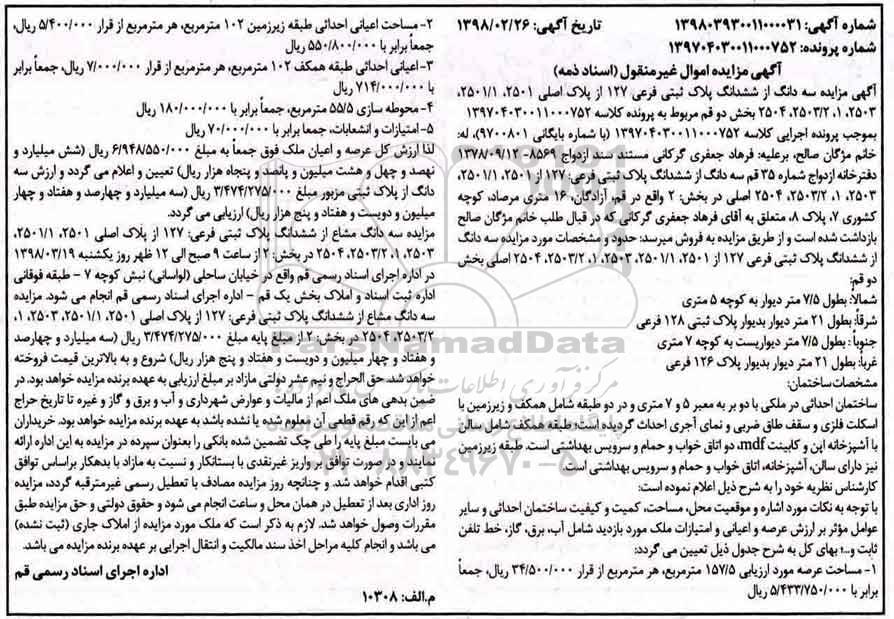 شماره آگهی: ۱۳۹۸۰۳۹۳۰۰۱۱۰۰۰۰۳۱
تاریخ آگهی: ۱۳۹۸/۰۲/۲۶
شماره پرونده: ۱۳۹۷۰۴۰۳۰۰۱۱۰۰۰۷۵۲
آگهی مزایده اموال غیرمنقول (اسناد ذمه)
آگهی مزایده سه دانگ از ششدانگ پلاک ثبتی فرعی ۱۲۷ از پلاک اصلی ۲۵۰۱، ۲۵۰۱/۱،
۲۵۰۳، ۱، ۲۵۰۳/۲، ۲۵۰۴ بخش دو قم مربوط به پرونده کلاسه ۱۳۹۷۰۴۰۳۰۰۱۱۰۰۰۷۵۲
بموجب پرونده اجرایی کلاسه ۱۳۹۷۰۴۰۳۰۰۱۱۰۰۰۷۵۲ (با شماره بایگانی ۹۷۰۰۸۰۱)، له:
خانم مژگان صالح، برعلیه: فرهاد جعفری گرکانی مستند سند ازدواج ۸۵۶۹- ۱۳۷۸/۰۹/۱۲
دفترخانه ازدواج شماره ۳۵ قم سه دانگ از ششدانگ پلاک ثبتی فرعی: ۱۲۷ از ۲۵۰۱، ۲۵۰۱/۱،
۲۵۰۳، ۱، ۲۵۰۳/۲، ۲۵۰۴ اصلی در بخش: ۲ واقع در قم، آزادگان، ۱۶ متری مرصاد، کوچه
کشوری ۷، پلاک ۸، متعلق به آقای فرهاد جعفری گرکانی که در قبال طلب خانم مژگان صالح
بازداشت شده است و از طریق مزایده به فروش میرسد؛ حدود و مشخصات مورد مزایده سه دانگ
از ششدانگ پلاک ثبتی فرعی ۱۲۷ از ۲۵۰۱، ۲۵۰۱/۱، ۲۵۰۳، ۱، ۲۵۰۳/۲، ۲۵۰۴ اصلی بخش
دو قم:
شمالاً: بطول ۷/۵ متر دیوار به کوچه ۵ متری
شرقاً: بطول ۲۱ متر دیوار بدیوار پلاک ثبتی ۱۲۸ فرعی
جنوباً: بطول ۷/۵ متر دیواریست به کوچه ۷ متری
غرباً: بطول ۲۱ متر دیوار بدیوار پلاک ۱۲۶ فرعی
مشخصات ساختمان:
ساختمان احداثی در ملکی با دو بر به معبر ۵ و ۷ متری و در دو طبقه شامل همکف و زیرزمین با
اسکلت فلزی و سقف طاق ضربی و نمای آجری احداث گردیده است؛ طبقه همکف شامل سالن
با آشپزخانه اپن و کابینت mdf، دو اتاق خواب و حمام و سرویس بهداشتی است. طبقه زیرزمین
نیز دارای سالن، آشپزخانه، اتاق خواب و حمام و سرویس بهداشتی است.
کارشناس نظریه خود را به شرح ذیل اعلام نموده است:
با توجه به نکات مورد اشاره و موقعیت محل، مساحت، کمیت و کیفیت ساختمان احداثی و سایر
عوامل مؤثر بر ارزش عرصه و اعیانی و امتیازات ملک مورد بازدید شامل آب، برق، گاز، خط تلفن
ثابت و...؛ بهای کل به شرح جدول ذیل تعیین می گردد:
۱- مساحت عرصه مورد ارزیابی ۱۵۷/۵ مترمربع، هر مترمربع از قرار ۳۴/۵۰۰/۰۰۰ ریال، جمعاً
برابر با ۵/۴۳۳/۷۵۰/۰۰۰ ریال
۲- مساحت اعیانی احداثی طبقه زیرزمین ۱۰۲ مترمربع، هر مترمربع از قرار ۵/۴۰۰/۰۰۰ ریال،
جمعاً برابر با ۵۵۰/۸۰۰/۰۰۰ ریال
۳- اعیانی احداثی طبقه همکف ۱۰۲ مترمربع، هر مترمربع از قرار ۷/۰۰۰/۰۰۰ ریال، جمعاً برابر
با ۷۱۴/۰۰۰/۰۰۰ ریال
۴- محوطه سازی ۵۵/۵ مترمربع، جمعاً برابر با ۱۸۰/۰۰۰/۰۰۰ ریال
۵- امتیازات و انشعابات، جمعا برابر با ۷۰/۰۰۰/۰۰۰ ریال
لذا ارزش کل عرصه و اعیان ملک فوق جمعاً به مبلغ ۶/۹۴۸/۵۵۰/۰۰۰ ریال (شش میلیارد و
نهصد و چهل و هشت میلیون و پانصد و پنجاه هزار ریال) تعیین و اعلام می گردد و ارزش سه
دانگ از پلاک ثبتی مزبور مبلغ ۳/۴۷۴/۲۷۵/۰۰۰ ریال (سه میلیارد و چهارصد و هفتاد و چهار
میلیون و دویست و هفتاد و پنج هزار ریال) ارزیابی می گردد.
مزایده سه دانگ مشاع از ششدانگ پلاک ثبتی فرعی: ۱۲۷ از پلاک اصلی ۲۵۰۱، ۲۵۰۱/۱،
۲۵۰۳، ۱، ۲۵۰۳/۲، ۲۵۰۴ در بخش: ۲ از ساعت ۹ صبح الی ۱۲ ظهر روز یکشنبه ۱۳۹۸/۰۳/۱۹
در اداره اجرای اسناد رسمی قم واقع در خیابان ساحلی (لواسانی) نبش کوچه ۷ - طبقه فوقانی
اداره ثبت اسناد و املاک بخش یک قم - اداره اجرای اسناد رسمی قم انجام می شود. مزایده
سه دانگ مشاع از ششدانگ پلاک ثبتی فرعی: ۱۲۷ از پلاک اصلی ۲۵۰۱، ۲۵۰۱/۱، ۲۵۰۳، ۱،
۲۵۰۳/۲، ۲۵۰۴ در بخش: ۲ از مبلغ پایه مبلغ ۳/۴۷۴/۲۷۵/۰۰۰ ریال (سه میلیارد و چهارصد
و هفتاد و چهار میلیون و دویست و هفتاد و پنج هزار ریال) شروع و به بالاترین قیمت فروخته
خواهد شد. حق الحراج و نیم عشر دولتی مازاد بر مبلغ ارزیابی به عهده برنده مزایده خواهد بود. در
ضمن بدهی های ملک اعم از مالیات و عوارض شهرداری و آب و برق و گاز و غیره تا تاریخ حراج
اعم از این که رقم قطعی آن معلوم شده یا نشده باشد به عهده برنده مزایده خواهد بود. خریداران
می بایست مبلغ پایه را طی چک تضمین شده بانکی را بعنوان سپرده در مزایده به این اداره ارائه
نمایند و در صورت توافق بر واریز غیرنقدی با بستانکار و نسبت به مازاد با بدهکار براساس توافق
کتبی اقدام خواهد شد. و چنانچه روز مزایده مصادف با تعطیل رسمی غیرمترقبه گردد، مزایده
روز اداری بعد از تعطیل در همان محل و ساعت انجام می شود و حقوق دولتی و حق مزایده طبق
مقررات وصول خواهد شد. لازم به ذکر است که ملک مورد مزایده از املاک جاری (ثبت نشده)
می باشد و انجام کلیه مراحل اخذ سند مالکیت و انتقال اجرایی بر عهده برنده مزایده می باشد.
اداره اجرای اسناد رسمی قم
م.الف: ۱۰۳۰۸
ParsNamadData